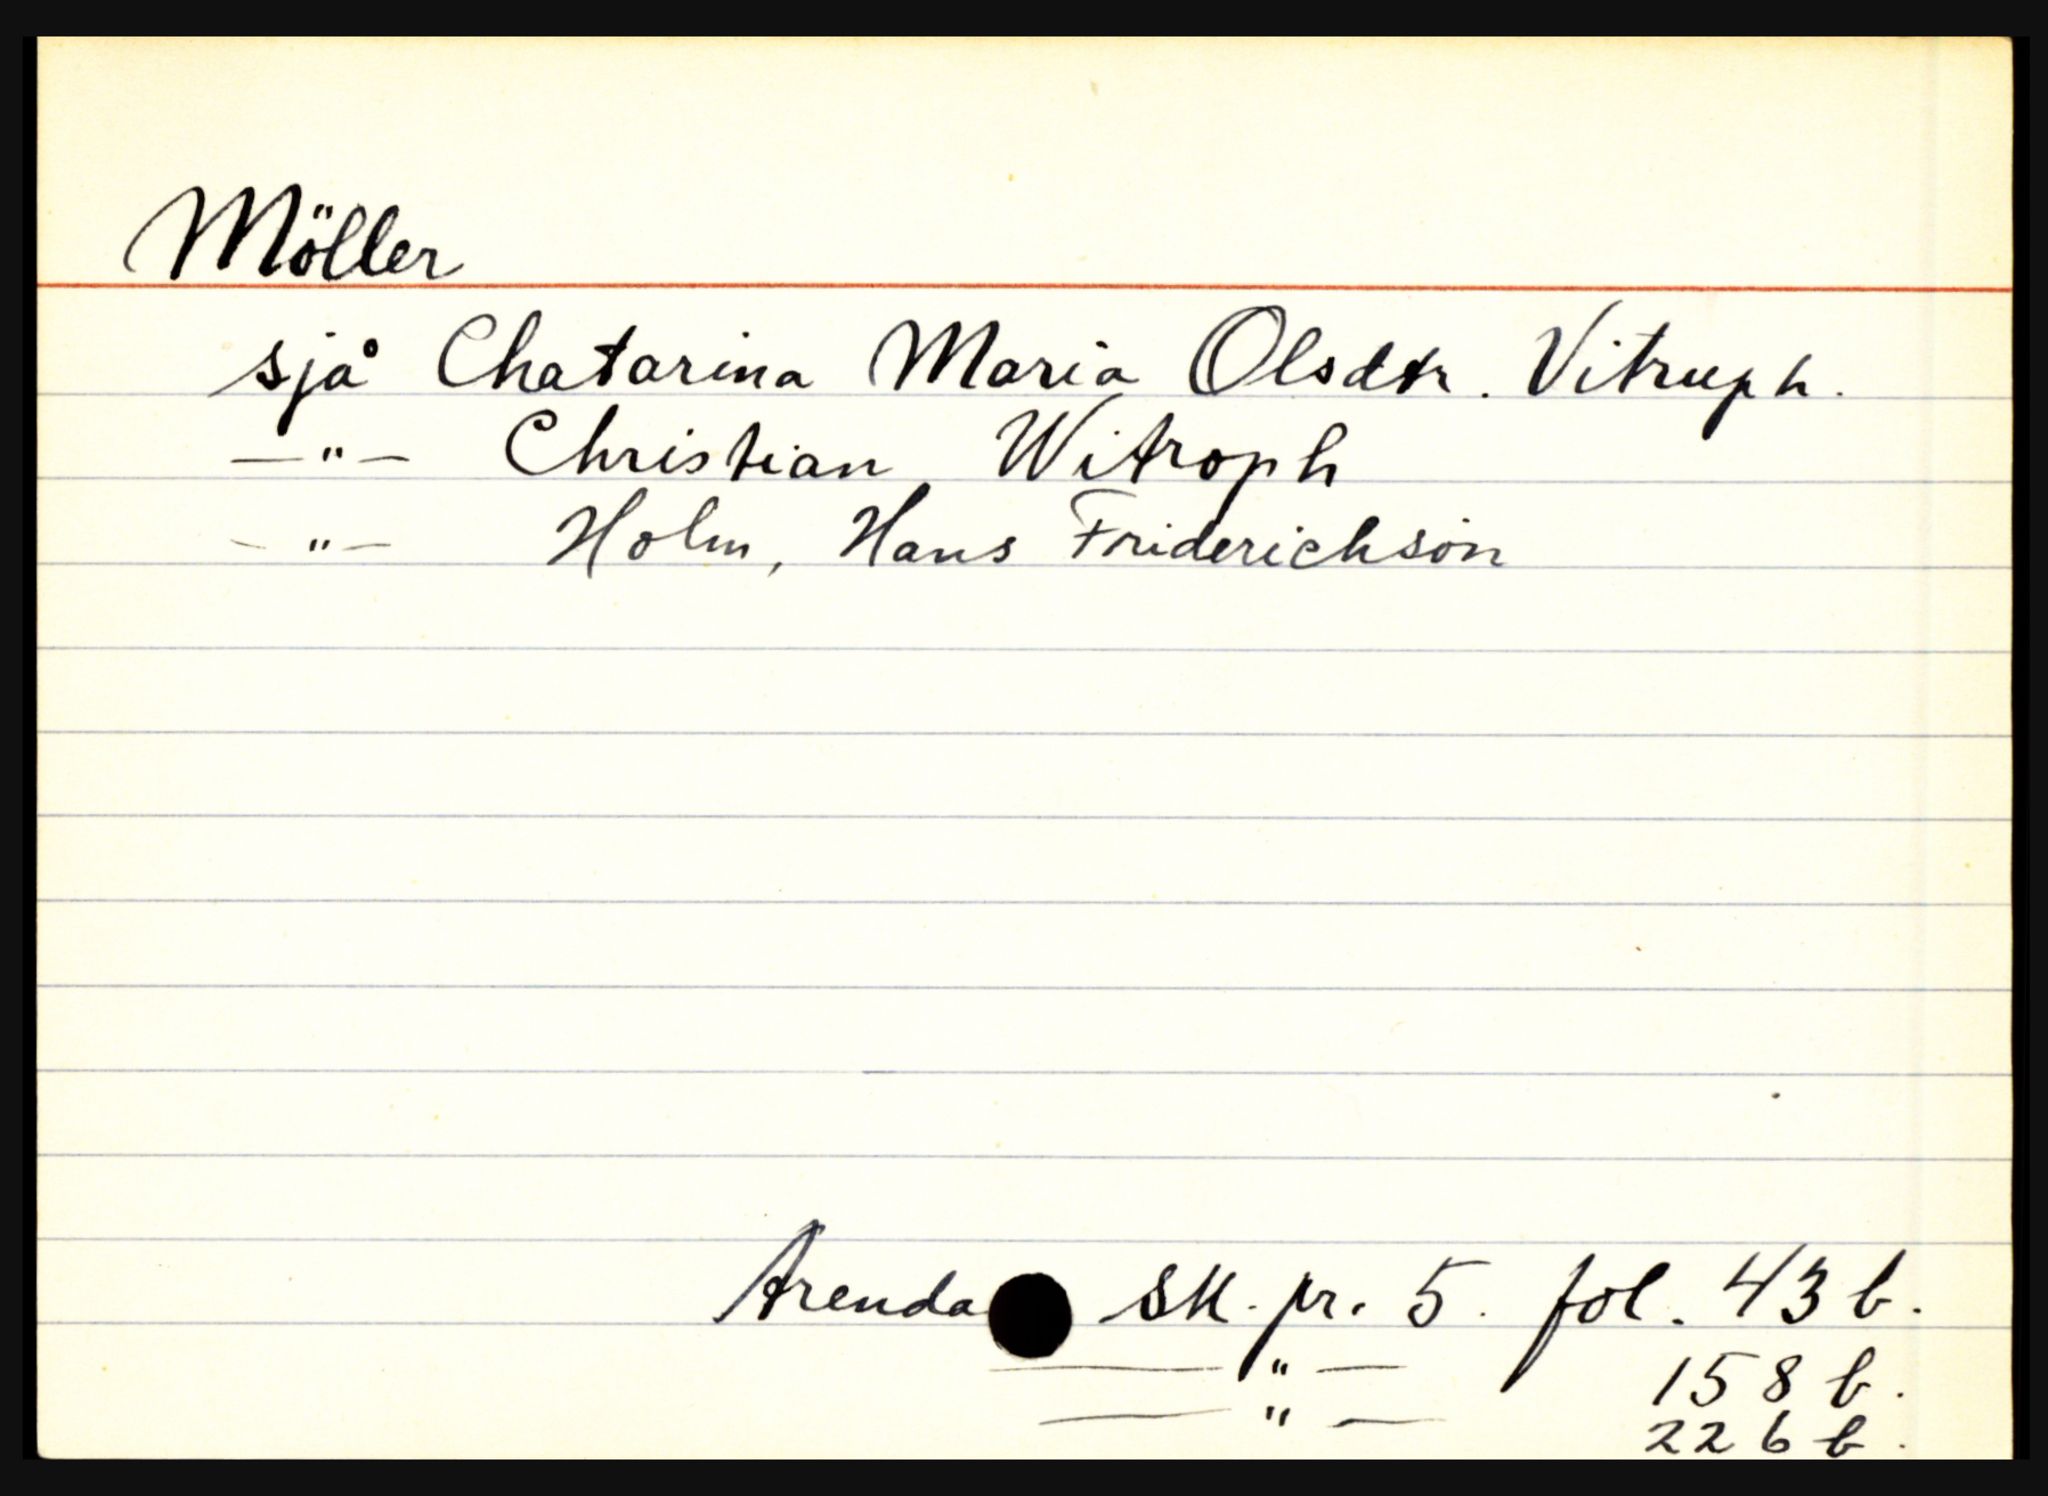 Möller
sjå Chatarina Maria Olsdtr. Vitruph.
—"— Christian Witroph
—"— Holm, Hans Friderichsøn
Arenda sk. pr. 5. fol. 43 b.
—"— 158 b.
—"— 226 b.